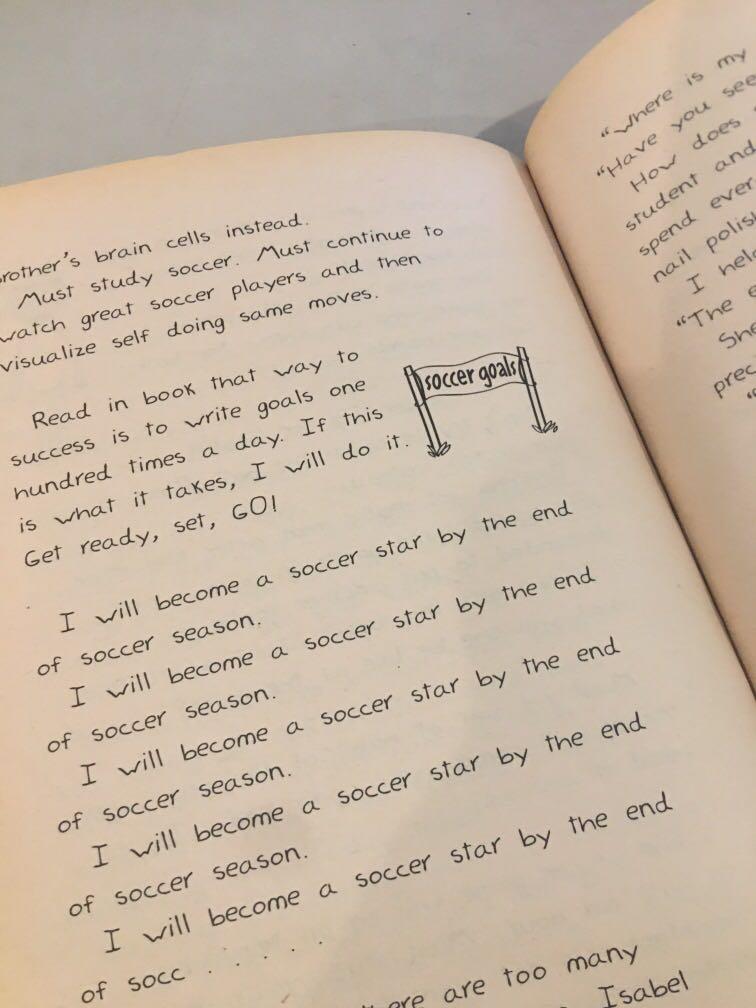 brother's brain cells instead.
Must study soccer. Must continue to
watch great soccer players and then
visualize self doing same moves.
Read in book that way to
success is to write goals one
hundred times a day. If this
is what it takes, I will do it.
Get ready, set, GO!
soccer goals
I will become a soccer star by the end
of soccer season.
I will become a soccer star by the end
of soccer season.
I will become a soccer star by the end
of soccer season.
I will become a soccer star by the end
of soccer season.
I will become a soccer star by the end
of socc . . . . .
are too many
Isabel
"Where is my
"Have you see
How does
student and
spend ever
nail polis
I hel
"The
She
prec